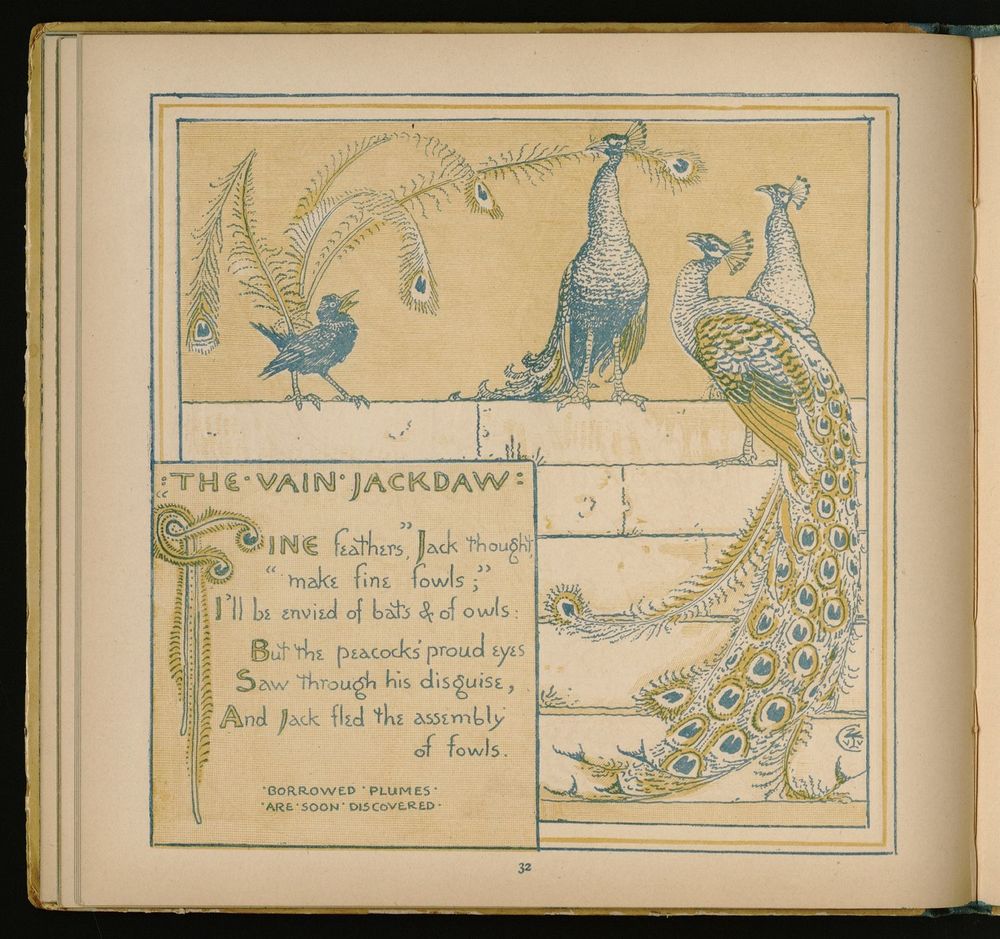 :THE·VAIN·JACKDAW:
"FINE feathers," Jack thought,
"make fine fowls;"
I'll be envied of bats & of owls:
But the peacock's proud eyes
Saw through his disguise,
And Jack fled the assembly
of fowls.
·BORROWED·PLUMES·
·ARE·SOON·DISCOVERED·
32